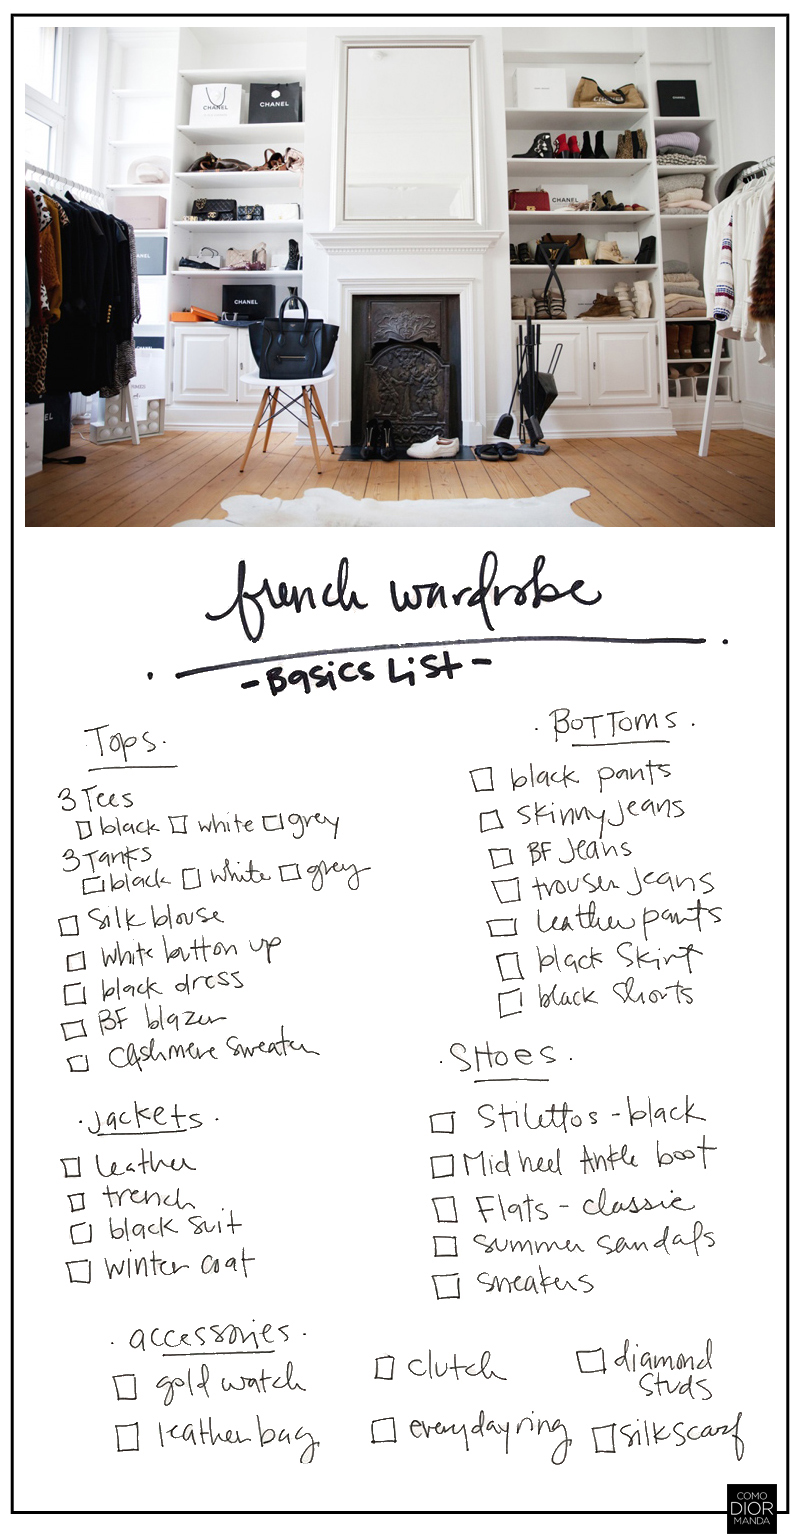 CHANEL
CHANEL
CHANEL
CHANEL
CHANEL
french wardrobe
-Basics List-
Tops.
3 Tees
black white grey
3 Tanks
black white grey
silk blouse
white button up
black dress
BF blazer
cashmere sweater
.Jackets.
leather
trench
black suit
winter coat
.Bottoms.
black pants
skinny jeans
BF Jeans
trouser jeans
leather pants
black skirt
black shorts
.Shoes.
Stilettos - black
Mid heel Ankle boot
Flats - classic
summer sandals
sneakers
.accessories.
gold watch
clutch
diamond
studs
leather bag
everyday ring
silk scarf
COMO
DIOR
MANDA